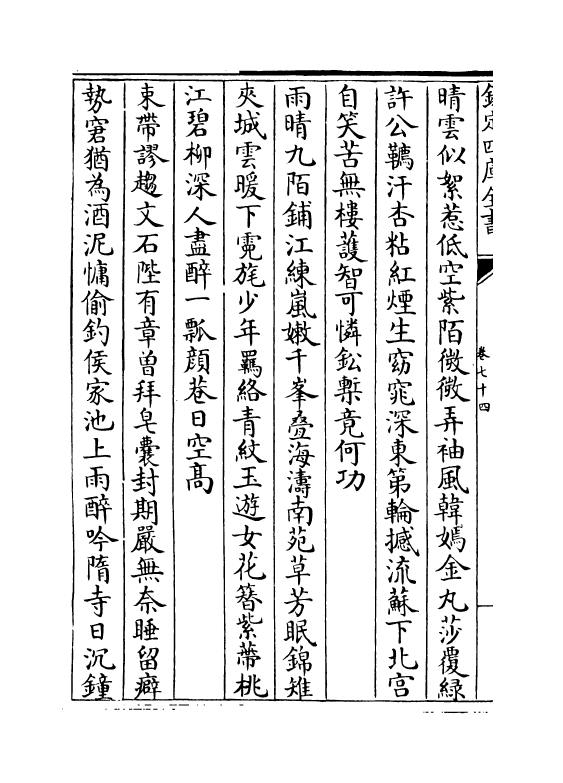 欽定四庫全書
卷七十四
晴雲似絮惹低空紫陌微微弄袖風韓嫣金丸莎覆綠
許公鞲汗杏粘紅煙生窈窕深東第輪撼流蘇下北宫
自笑苦無樓䕶智可憐鉛槧竟何功
雨晴九陌鋪江練嵐嫩千峯疊海濤南苑草芳眠錦雉
夾城雲暖下霓旄少年羈絡青紋玉遊女花簪紫蔕桃
江碧柳深人盡醉一瓢顔巷日空髙
束帶謬趨文石陛有章曽拜皂囊封期嚴無奈睡留癖
勢窘猶為酒泥慵偷釣侯家池上雨醉吟隋寺日沉鐘